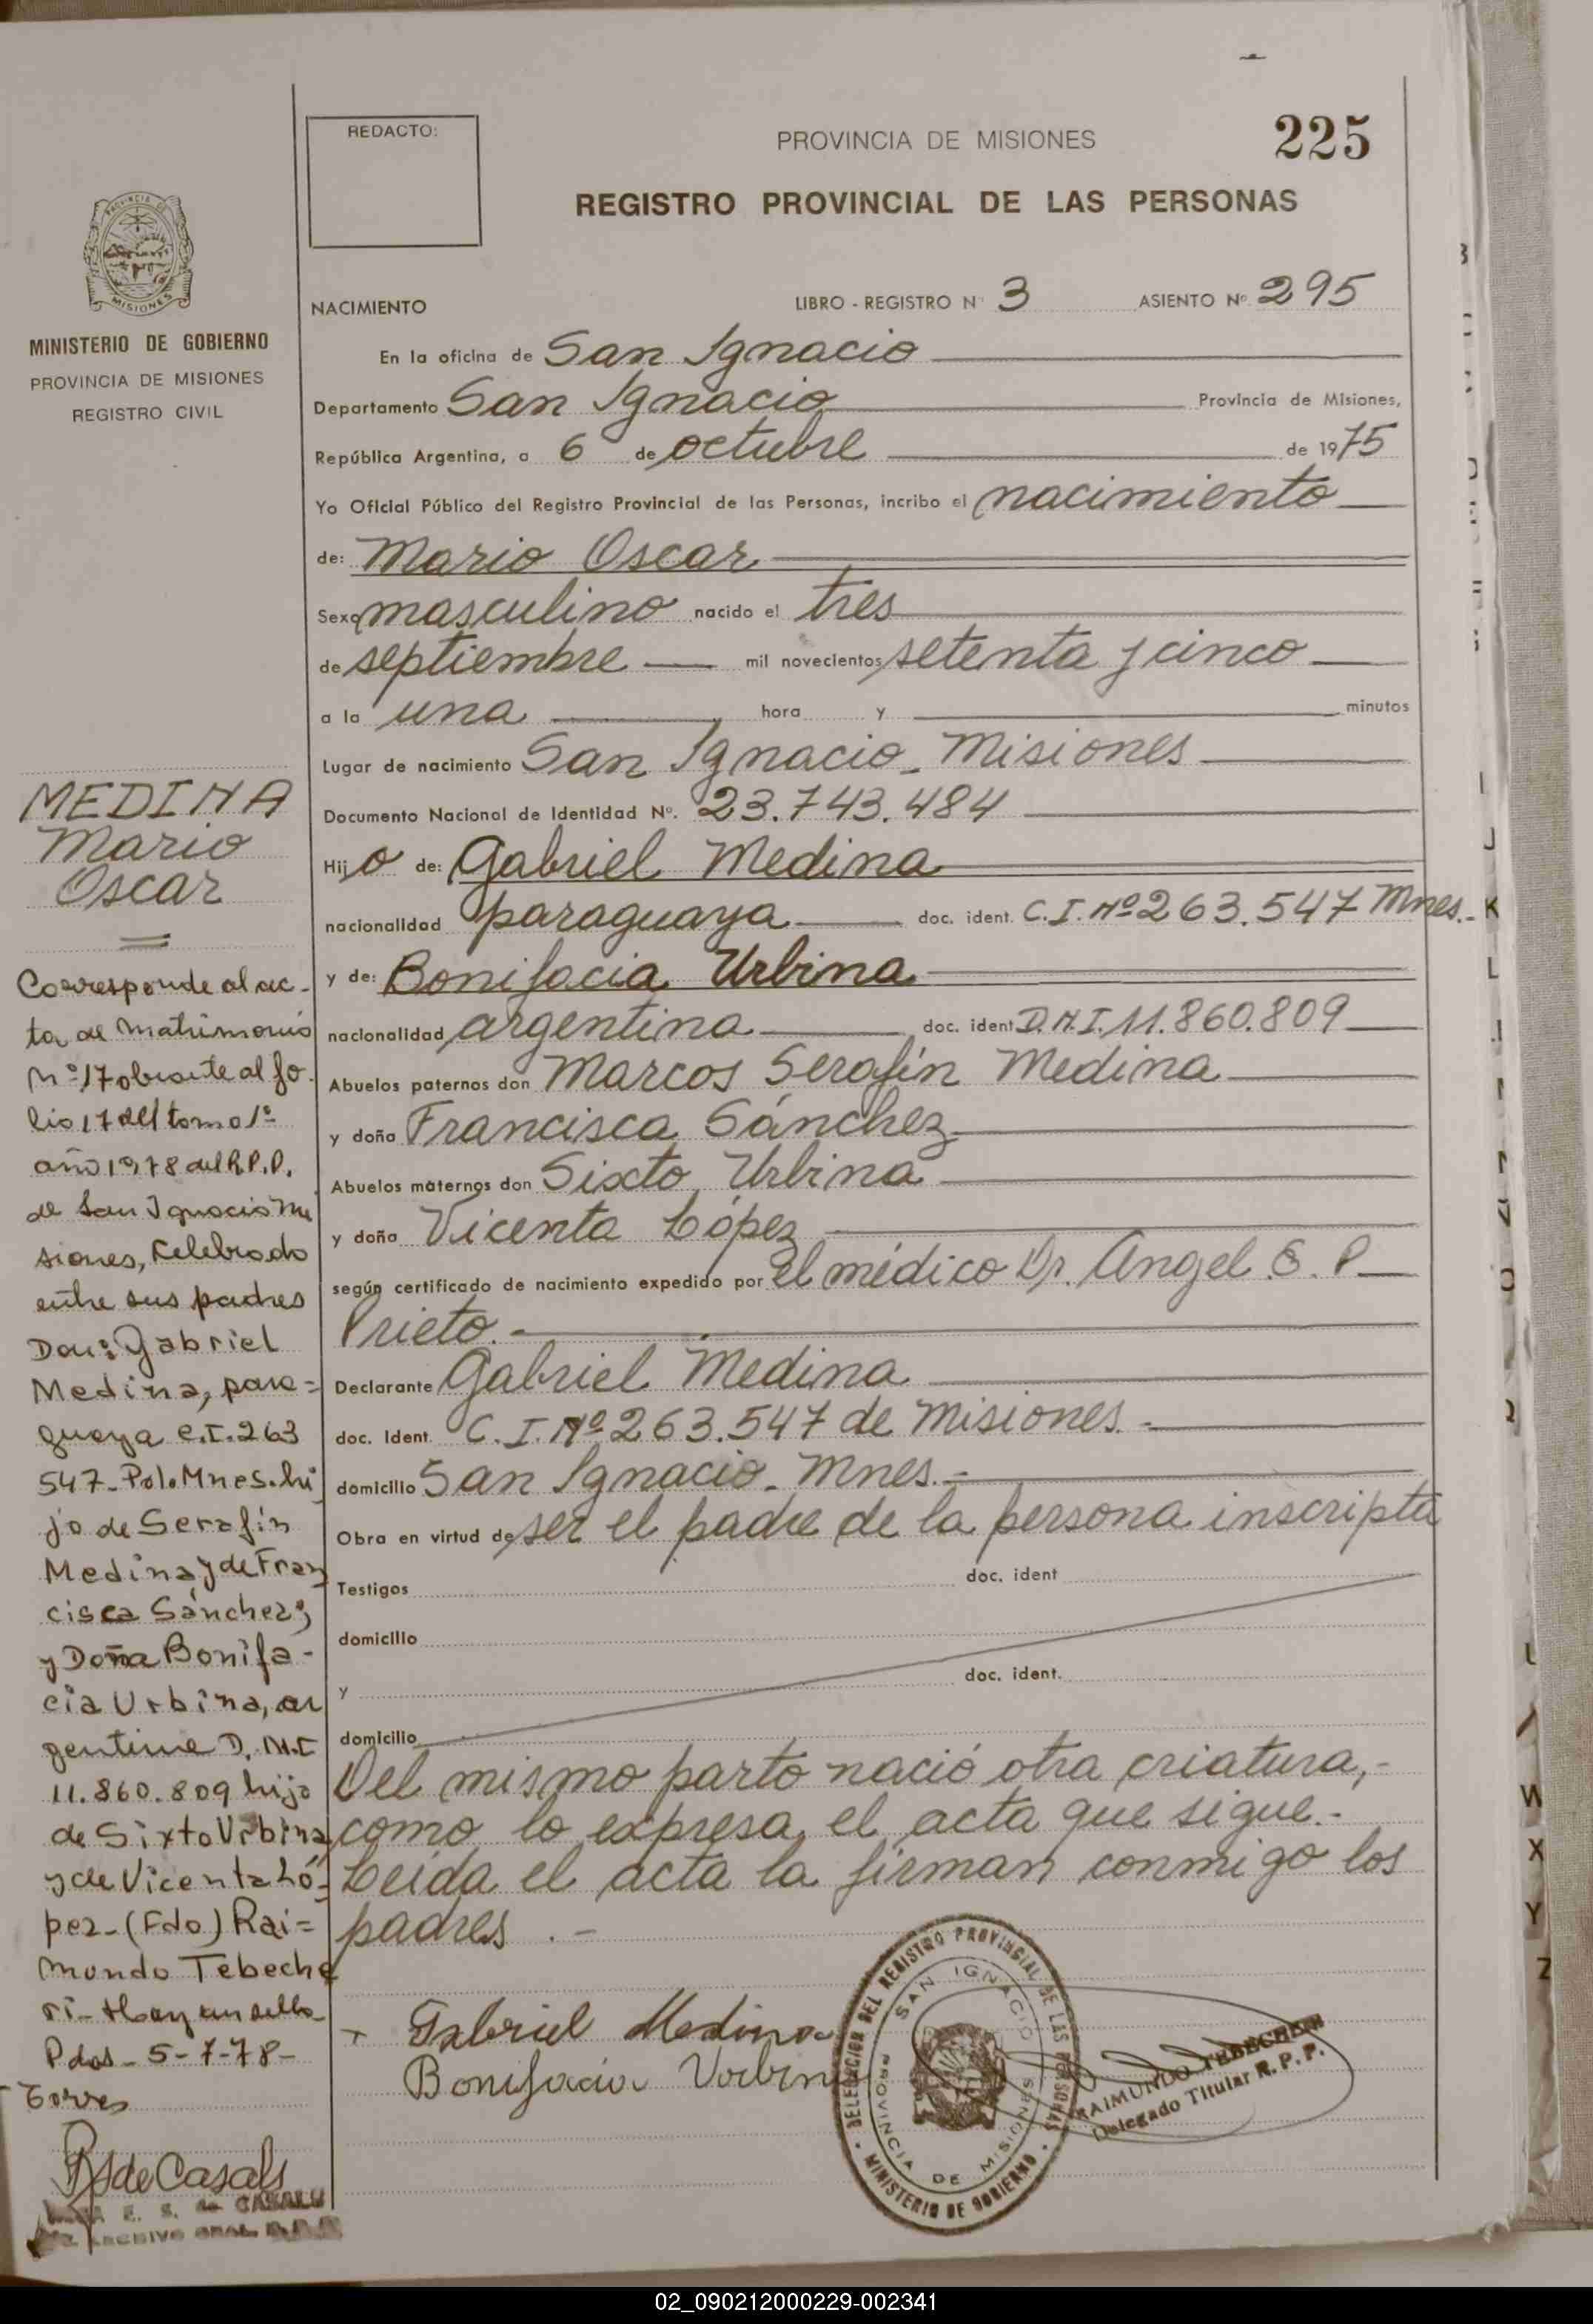 REDACTO:
PROVINCIA DE MISIONES
225
REGISTRO PROVINCIAL DE LAS PERSONAS
PROVINCIA DE
MISIONES
MINISTERIO DE GOBIERNO
PROVINCIA DE MISIONES
REGISTRO CIVIL
NACIMIENTO LIBRO - REGISTRO Nº 3 ASIENTO Nº. 295
En la oficina de San Ignacio
Departamento San Ignacio Provincia de Misiones,
República Argentina, a 6 de octubre de 1975
Yo Oficial Público del Registro Provincial de las Personas, incribo el nacimiento
de: Mario Oscar
Sexo masculino nacido el tres
de septiembre mil novecientos setenta y cinco
a la una hora y minutos
Lugar de nacimiento San Ignacio - Misiones
Documento Nacional de Identidad Nº. 23.743.484
Hijo de: Gabriel Medina
nacionalidad paraguaya doc. ident. C.I. Nº 263.547 Mnes.-
y de: Bonifacia Urbina
nacionalidad argentina doc. ident D.N.I. 11.860.809
Abuelos paternos don Marcos Serafín Medina
y doña Francisca Sánchez
Abuelos maternos don Sixto Urbina
y doña Vicenta López
según certificado de nacimiento expedido por el médico Dr. Angel S. P.
Prieto.-
Declarante Gabriel Medina
doc. Ident. C.I. Nº 263.547 de Misiones.-
domicilio San Ignacio - Mnes.-
Obra en virtud de ser el padre de la persona inscripta
Testigos doc. ident
domicilio
y doc. ident.
domicilio
Del mismo parto nació otra criatura,-
como lo expresa el acta que sigue.-
Leída el acta la firman conmigo los
padres.-
Gabriel Medina
Bonifacia Urbina
DELEGACION DEL REGISTRO PROVINCIAL DE LAS PERSONAS
SAN IGNACIO
PROVINCIA DE MISIONES
MINISTERIO DE GOBIERNO
RAIMUNDO TEBECHERI
Delegado Titular R.P.P.
MEDINA
Mario
Oscar
Corresponde al ac-
ta de Matrimonio
Nº 17 obrante al fo-
lio 17 del tomo 1º
año 1978 del R.P.P.
de San Ignacio Mi
siones, Celebrado
entre sus padres
Don: Gabriel
Medina, para=
guaya C.I. 263
547- Pol. Mnes. hi
jo de Serafín
Medina y de Fran
cisca Sánchez;
y Doña Bonifa-
cia Urbina, ar
gentina D.N.I
11.860.809 hija
de Sixto Urbina
y de Vicenta Ló-
pez- (Fdo) Rai=
mundo Tebeche
ri- Hay un sello
Pdas- 5-7-78-
Torres
R S de Casals
E. S. de CASALS
ARCHIVO GRAL. R.P.P.
J
K
L
W
X
Y
Z
02_090212000229-002341